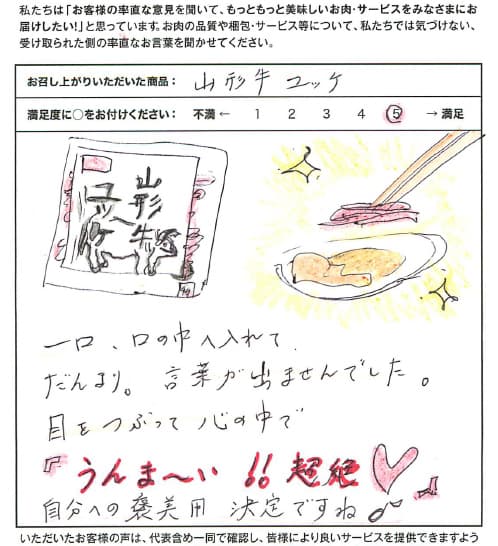 私たちは「お客様の率直な意見を聞いて、もっともっと美味しいお肉・サービスをみなさまにお
届けしたい!」と思っています。お肉の品質や梱包・サービス等について、私たちでは気づけない、
受け取られた側の率直なお言葉を聞かせてください。
お召し上がりいただいた商品： 山形牛ユッケ
満足度に○をお付けください： 不満 ← 1 2 3 4 5 → 満足
山形牛
ユッケ
一口、口の中へ入れて
だんまり。 言葉が出ませんでした。
目をつぶって心の中で
『うんま〜い!! 超絶♡』
自分への褒美用 決定ですね♪
いただいたお客様の声は、代表含め一同で確認し、皆様により良いサービスを提供できますよう